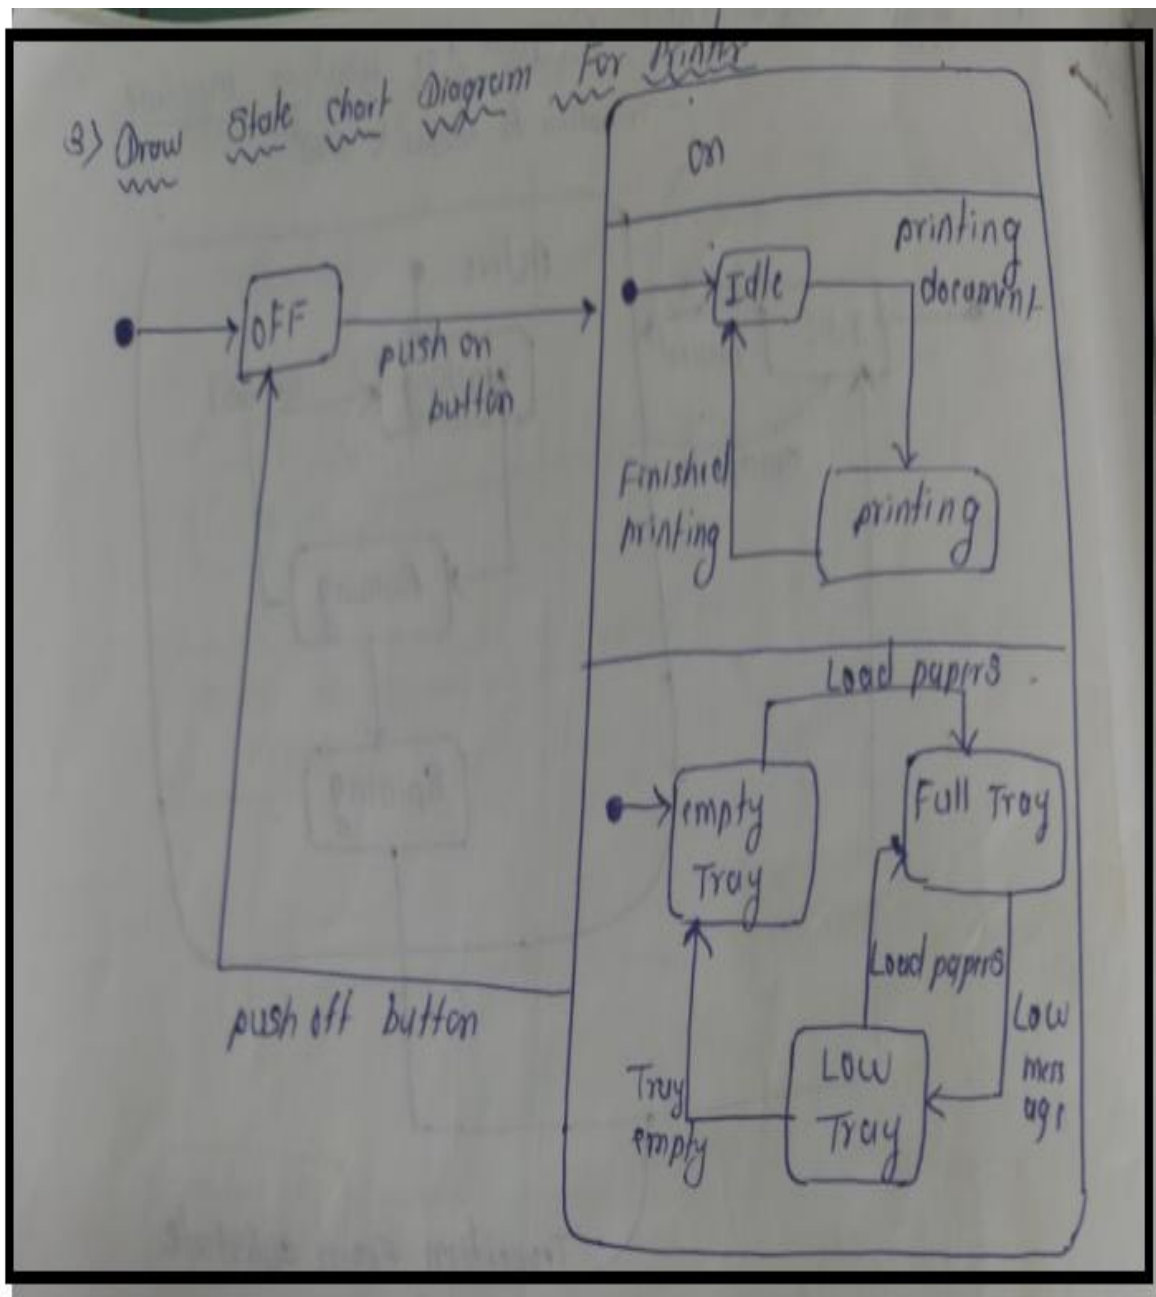 3) Draw State chart Diagram For Printer
on
OFF
push on
button
Idle
printing
document
Finished
printing
printing
Load papers
empty
Tray
Full Tray
Load papers
Low
mess
age
Low
Tray
Tray
empty
push off button